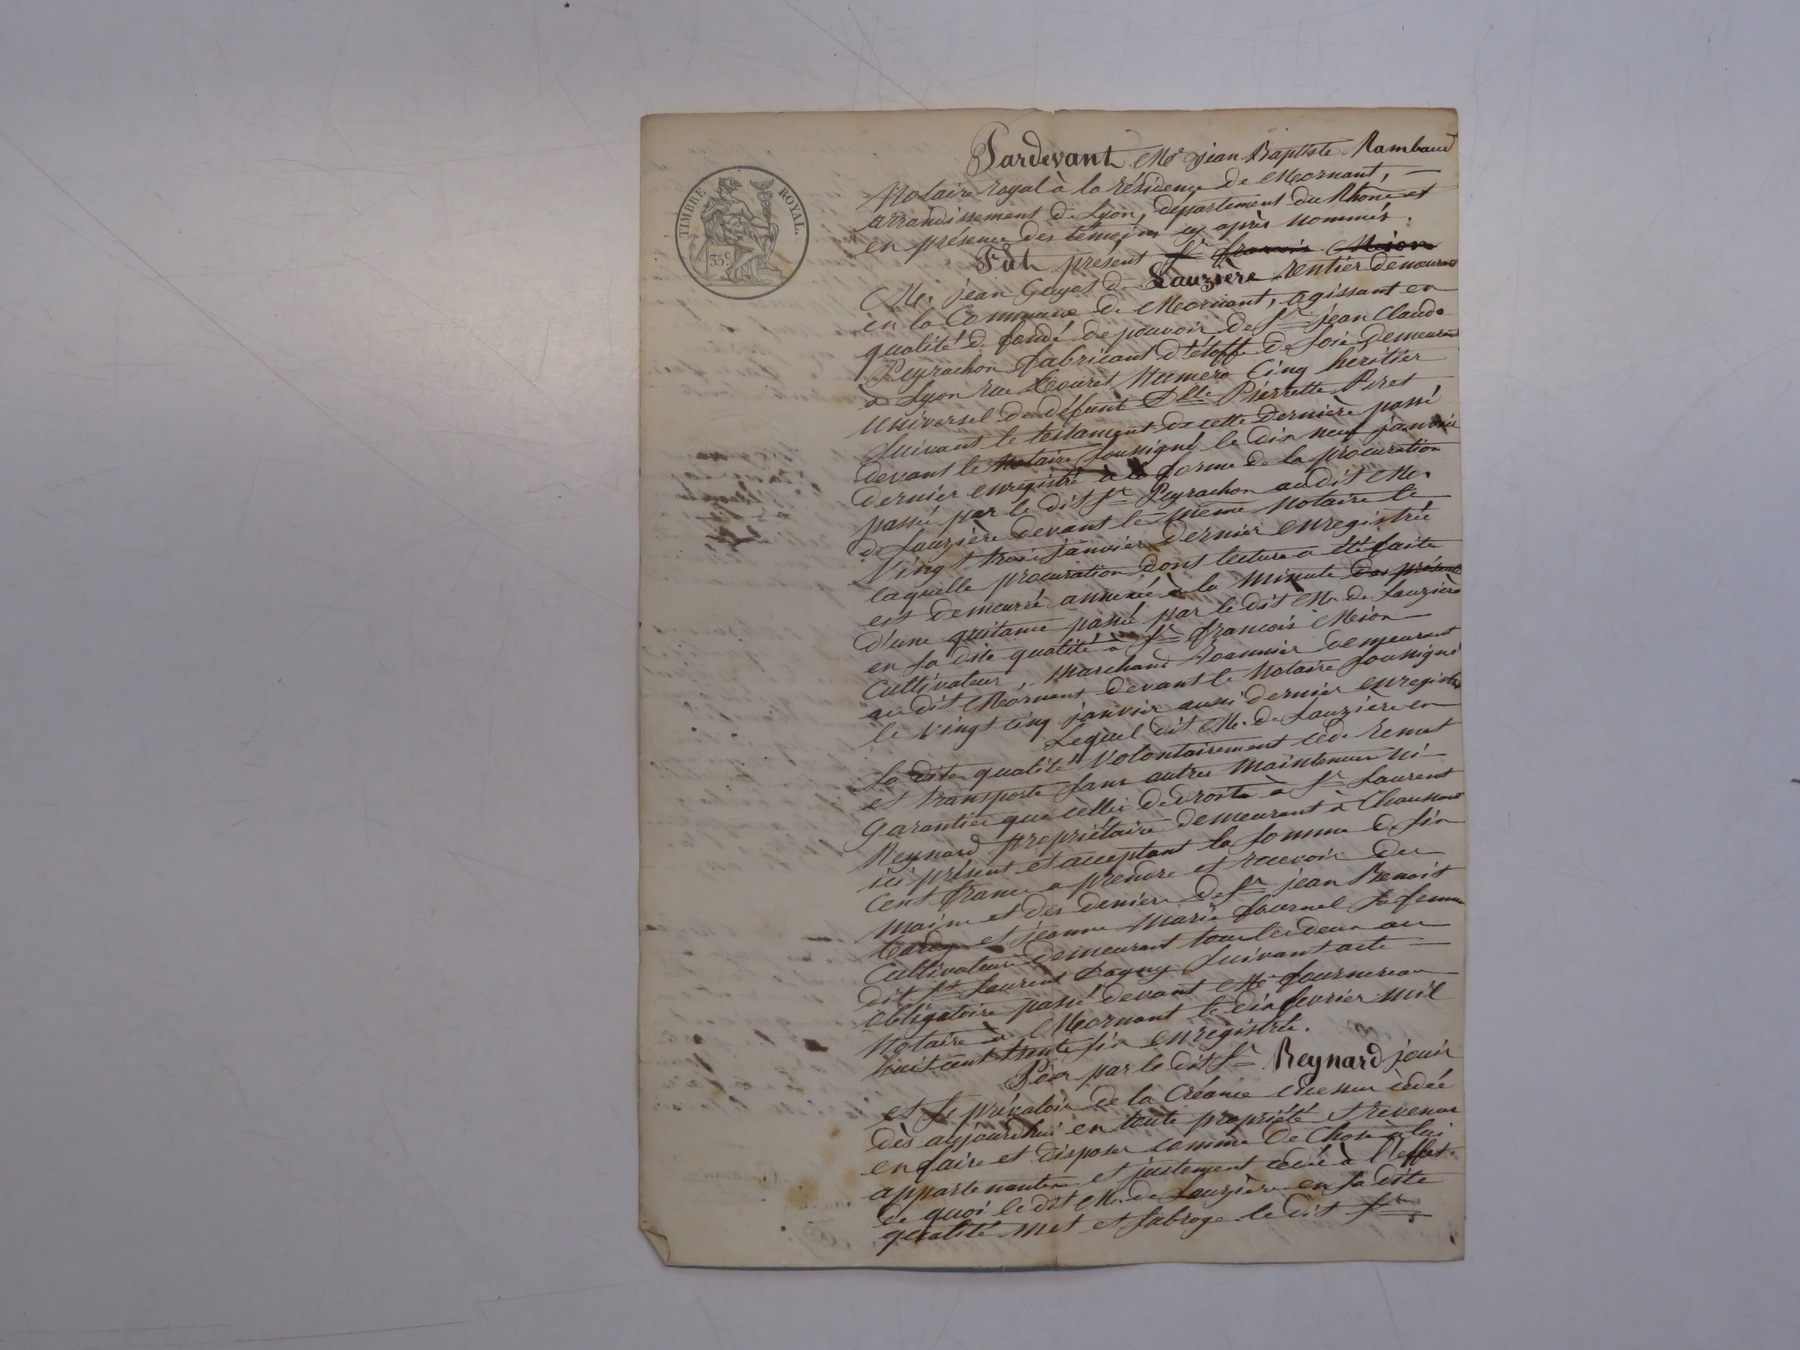 TIMBRE ROYAL.
35c
Pardevant Me jean Baptiste Rambaud
Notaire royal à la résidence de Mornant,
arrondissement de Lyon, département du Rhône et
en présence des témoins cy après nommés.
Fut present Sr françois Mion
M. jean Gayot de Lauzière rentier demeurant
en la Commune de Mornant, agissant en
qualité de fondé de pouvoir de Sr jean Claude
Peyrachon fabricant d'étoffe de soie demeurant
à Lyon rue numero Cinq heritier
universel de défunt Dlle Pierrette Piret
suivant le testament de cette dernière passé
devant le Notaire soussigné le dix neuf janvier
dernier enregistré à la forme de la procuration
passée par le dit Sr Peyrachon audit M.
de Lauzière devant le même Notaire le
Vingt trois janvier dernier enregistrée
laquelle procuration dont lecture a été faite
est demeurée annexée à la minute des présent
d'une quitance passée par le dit M. de Lauzière
en sa dite qualité à Sr francois Mion
Cultivateur, marchand demeurant
au dit Mornant devant le Notaire soussigné
le vingt cinq janvier aussi dernier enregistré
Lequel dit M. de Lauzière en
sa dite qualité Volontairement cède remet
et transporte sans autres maintenue ni
garantie que celles de droits à Sr Laurent
Reynard propriétaire demeurant à Chaussant
ici présent et acceptant la somme de six
Cent francs a prendre et recevoir des
mains et des deniers de Sr jean Benoit
et jeanne Marie fournel sa femme
Cultivateurs demeurant tous les deux au
dit St Laurent Dagny suivant acte
obligatoire passé devant Me fournereau
Notaire à Mornant le dix fevrier mil
huit cent trente six enregistré.
Pour par le dit Sr Reynard jouir
et se prévaloir de la Créance cédée
dès aujourdhui en toute propriété et revenus
en faire et disposer comme de Chose a lui
appartenante et justement cédée à l'effet
de quoi le dit M. de Lauzière en sa dite
qualité met et subroge le dit Sr